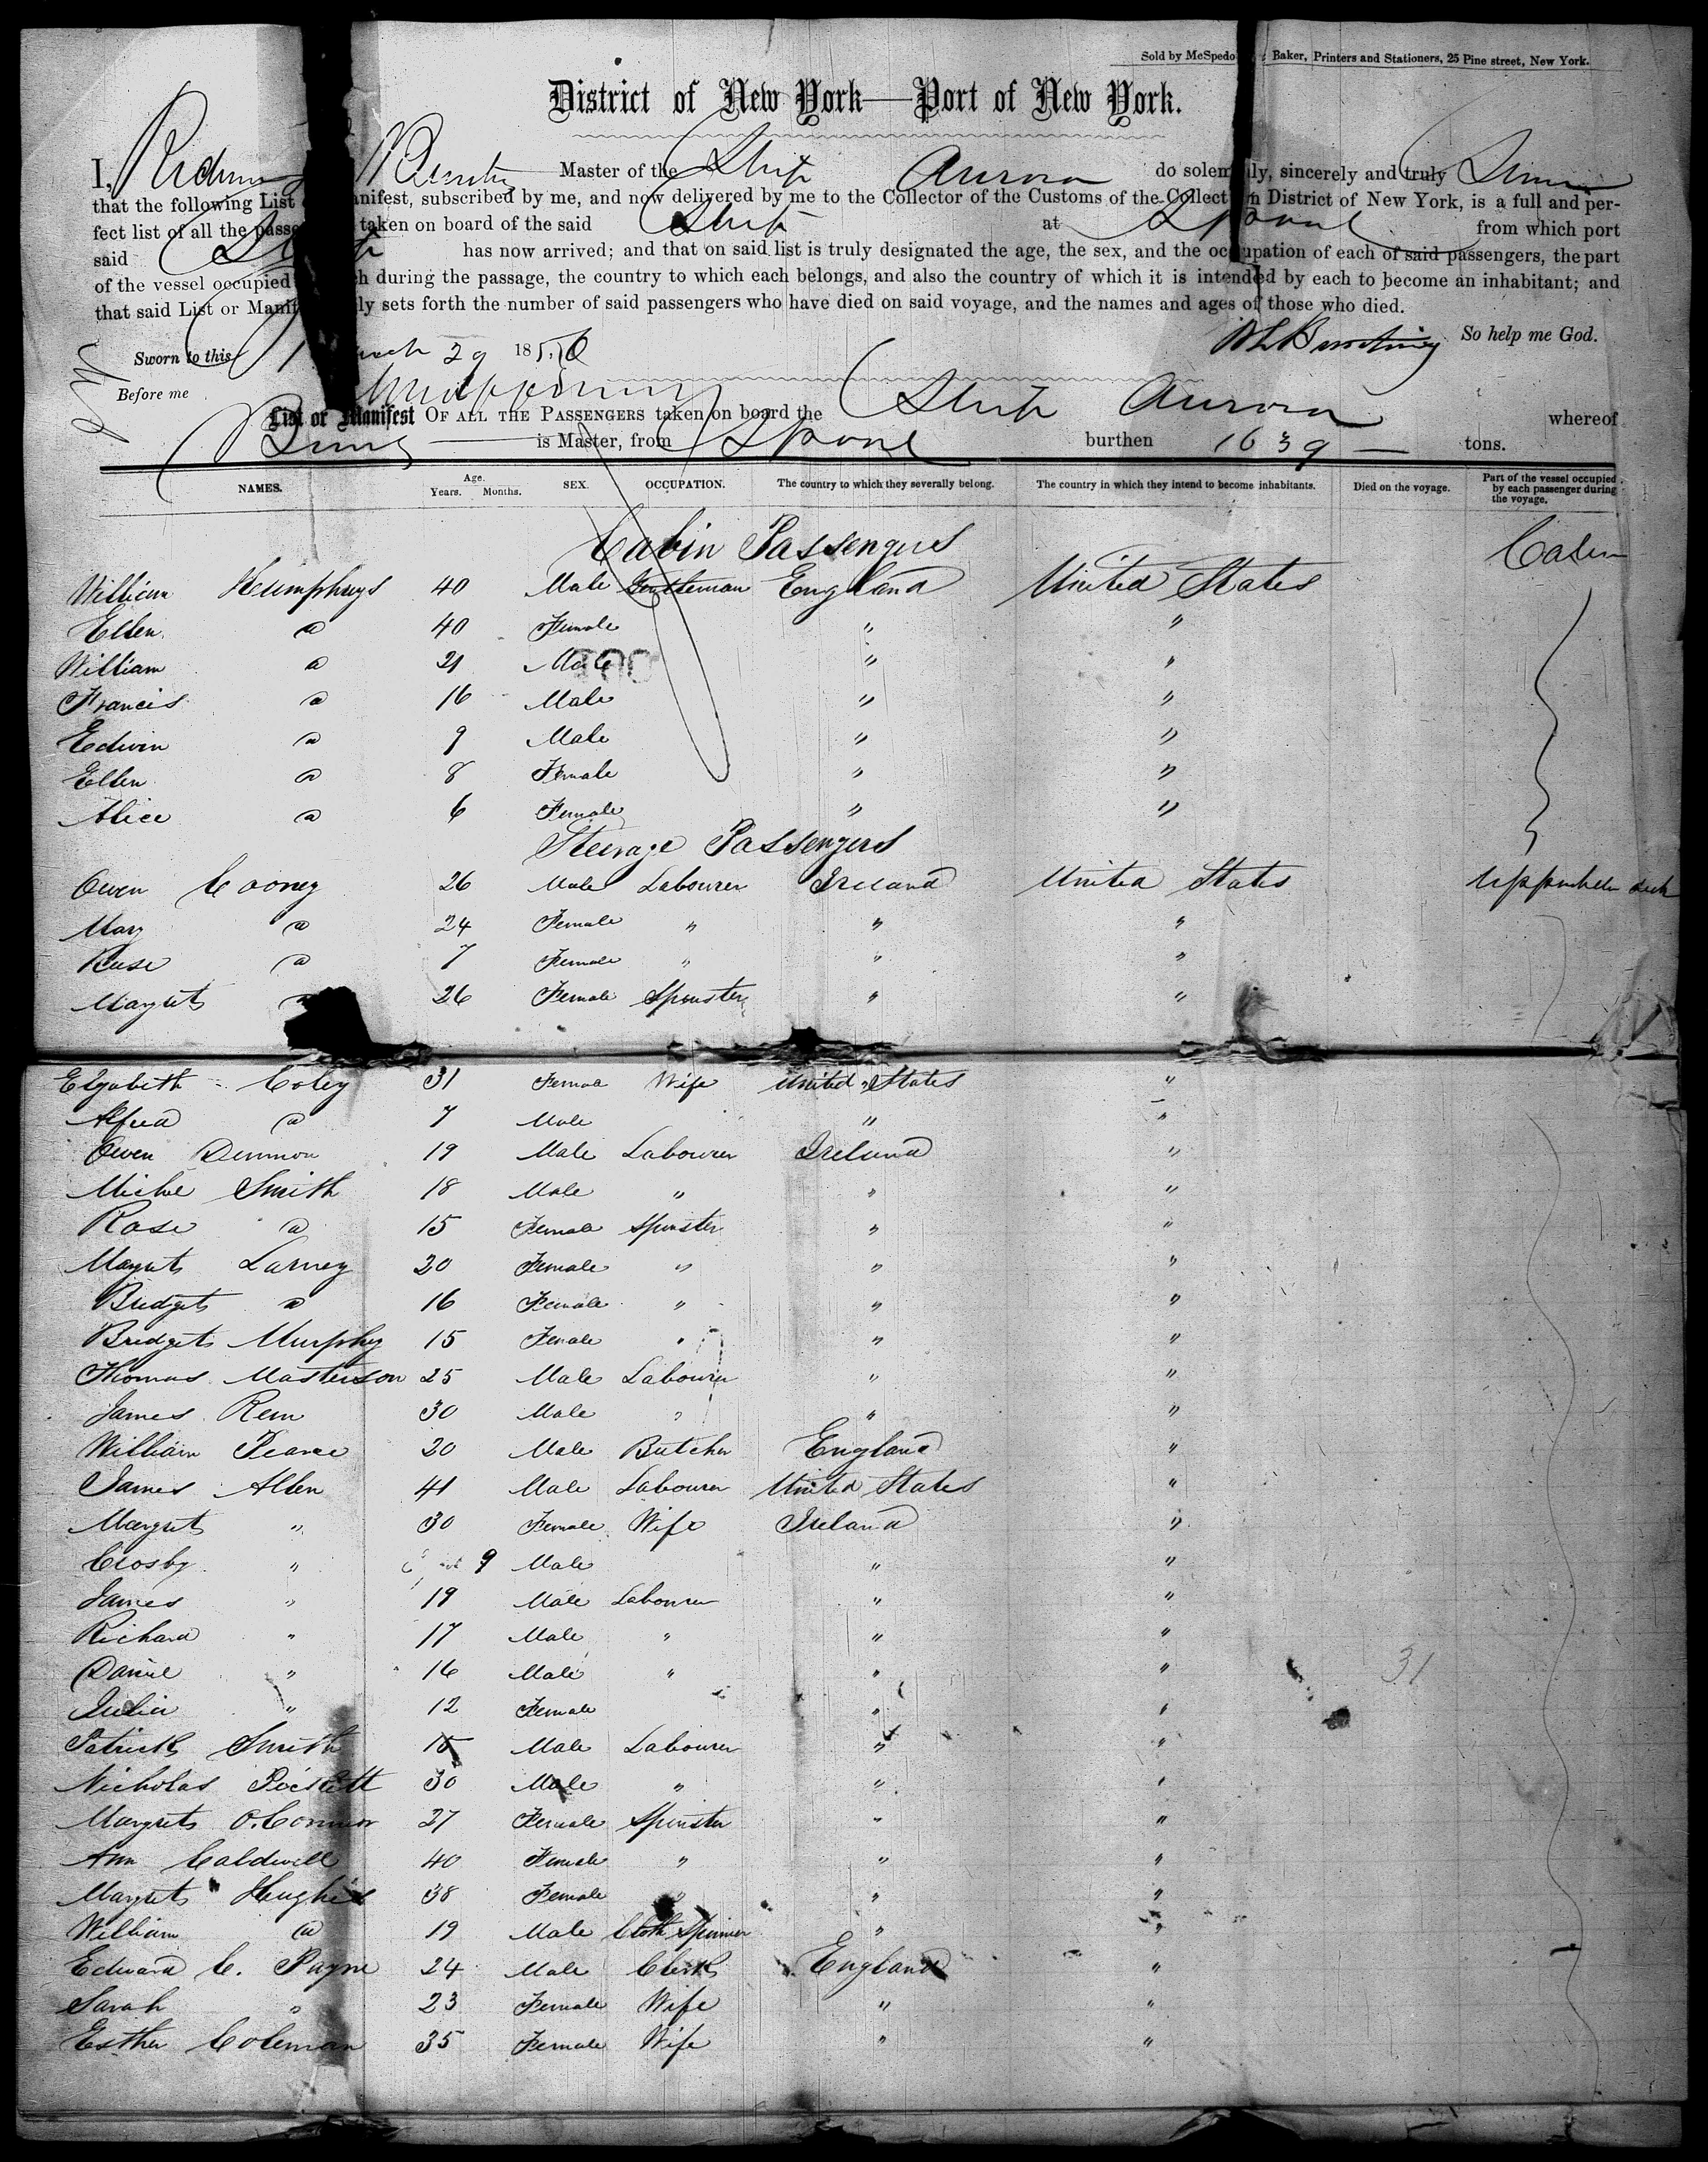 Sold by McSpedo Baker, Printers and Stationers, 25 Pine street, New York.
District of New York—Port of New York.
I, Master of the Ship Aurora do solem ly, sincerely and truly
that the following List anifest, subscribed by me, and now delivered by me to the Collector of the Customs of the Collect n District of New York, is a full and per-
fect list of all the passe taken on board of the said Ship at LPool from which port
said Ship has now arrived; and that on said list is truly designated the age, the sex, and the occupation of each of said passengers, the part
of the vessel occupied h during the passage, the country to which each belongs, and also the country of which it is intended by each to become an inhabitant; and
that said List or Manif ly sets forth the number of said passengers who have died on said voyage, and the names and ages of those who died.
So help me God.
Sworn to this 29 1856
Before me
List or Manifest OF ALL THE PASSENGERS taken on board the Ship Aurora whereof
is Master, from LPool burthen 1639 — tons.
NAMES. Age. Years. Months. SEX. OCCUPATION. The country to which they severally belong. The country in which they intend to become inhabitants. Died on the voyage. Part of the vessel occupied by each passenger during the voyage.
Cabin Passengers Cabin
William Humphrys 40 Male Gentleman England United States
Ellen @ 40 Female " "
William @ 21 Male " "
Francis @ 16 Male " "
Edwin @ 9 Male " "
Ellen @ 8 Female " "
Alice @ 6 Female " "
Steerage Passengers
Owen Cooney 26 Male Labourer Ireland United States
Mary @ 24 Female " " "
Rose @ 7 Female " " "
Margrets @ 26 Female Spinster " "
Elizabeth Coley 31 Female Wife United States "
Alfred @ 7 Male " "
Owen 19 Male Labourer Ireland "
Michl Smith 18 Male " " "
Rose @ 15 Female Spinster " "
Margrets Larney 20 Female " " "
Bridgets @ 16 Female " " "
Bridgets Murphy 15 Female " " "
Thomas Masterson 25 Male Labourer " "
James 30 Male " " "
William Pearce 20 Male Butcher England "
James Allen 41 Male Labourer United States "
Margrets " 30 Female Wife Ireland "
Crosby " 9 Male " "
James " 19 Male Labourer " "
Richard " 17 Male " " "
Daniel " 16 Male " " "
Julia " 12 Female " "
Patrick Smith 15 Male Labourer " "
Nicholas 30 Male " " "
Margrets O.Connor 27 Female Spinster " "
Ann Caldwell 40 Female " " "
Margrets Hughes 38 Female " " "
William @ 19 Male Cloth Spinner " "
Edward C. Payne 24 Male Clerk England "
Sarah " 23 Female Wife " "
Esther Coleman 35 Female Wife " "
31